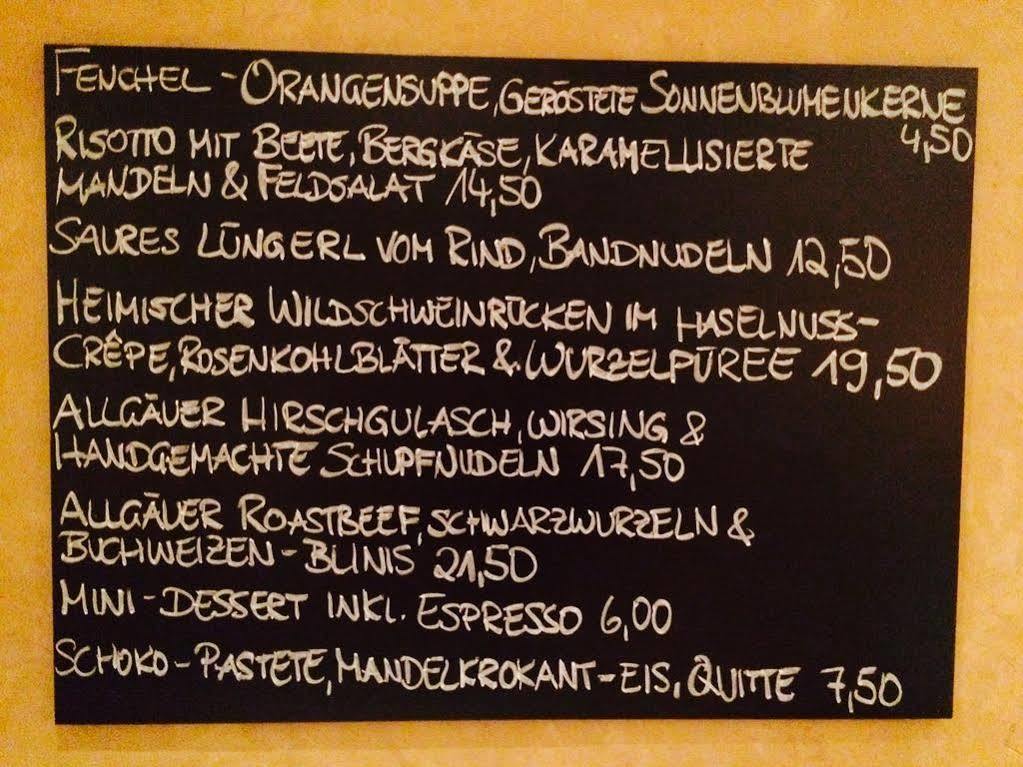 FENCHEL - ORANGENSUPPE, GERÖSTETE SONNENBLUMENKERNE
4,50
RISOTTO MIT BEETE, BERGKÄSE, KARAMELLISIERTE
MANDELN & FELDSALAT 14,50
SAURES LÜNGERL VOM RIND, BANDNUDELN 12,50
HEIMISCHER WILDSCHWEINRÜCKEN IM HASELNUSS-
CRÊPE, ROSENKOHLBLÄTTER & WURZELPÜREE 19,50
ALLGÄUER HIRSCHGULASCH, WIRSING &
HANDGEMACHTE SCHUPFNUDELN 17,50
ALLGÄUER ROASTBEEF, SCHWARZWURZELN &
BUCHWEIZEN-BLINIS 21,50
MINI-DESSERT INKL. ESPRESSO 6,00
SCHOKO-PASTETE, MANDELKROKANT-EIS, QUITTE 7,50